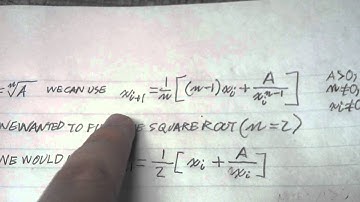 = ⁿ√A WE CAN USE xᵢ₊₁ = 1/n [(n-1)xᵢ + A/xᵢⁿ⁻¹] A>0,
n≠0,
xᵢ≠0
WE WANTED TO THE SQUARE ROOT (n=2)
WE WOULD = 1/2 [xᵢ + A/xᵢ]